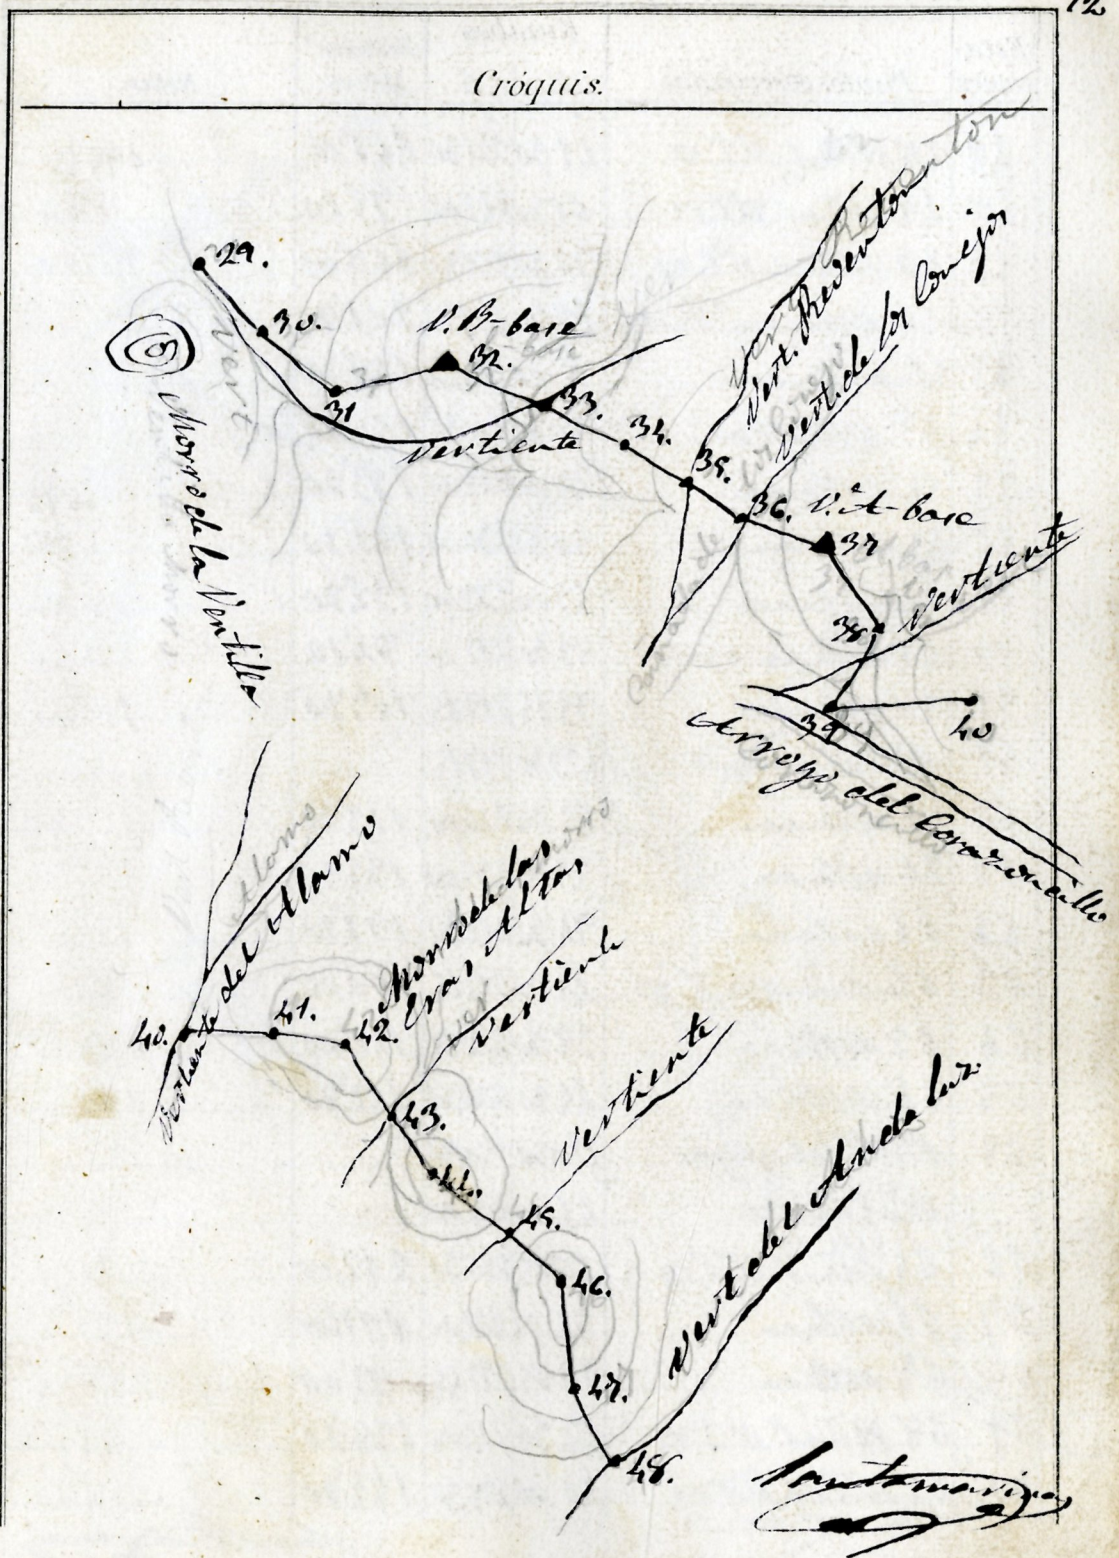 12
Cróquis.
29.
30.
31
V. B-base
32.
33.
Vertiente
34.
35.
Vert. Redenton
36.
Vert. de los Conejos
V. A-base
37
38.
Vertiente
39
40
Arroyo del Corazoncillo
Morro de la Ventilla
40.
Vertiente del Alamo
41.
42.
Morro de las
Eras Altas
43.
Vertiente
44.
45.
Vertiente
46.
47.
48.
Vert del Andaluz